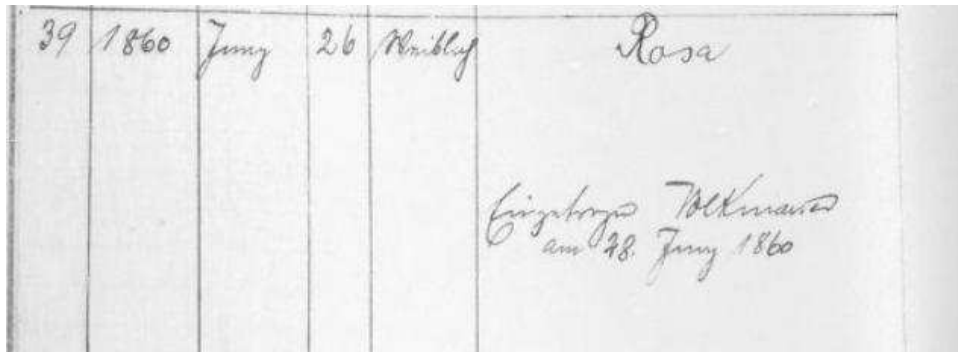 39 1860 Juny 26 Weiblich Rosa
Eingetragen Volkmann
am 28. Juny 1860